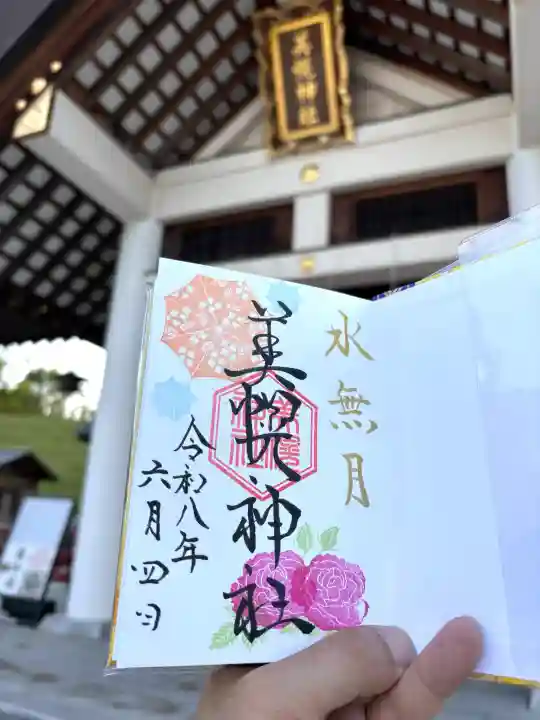 美幌神社
水無月
美幌神社
令和八年
六月四日